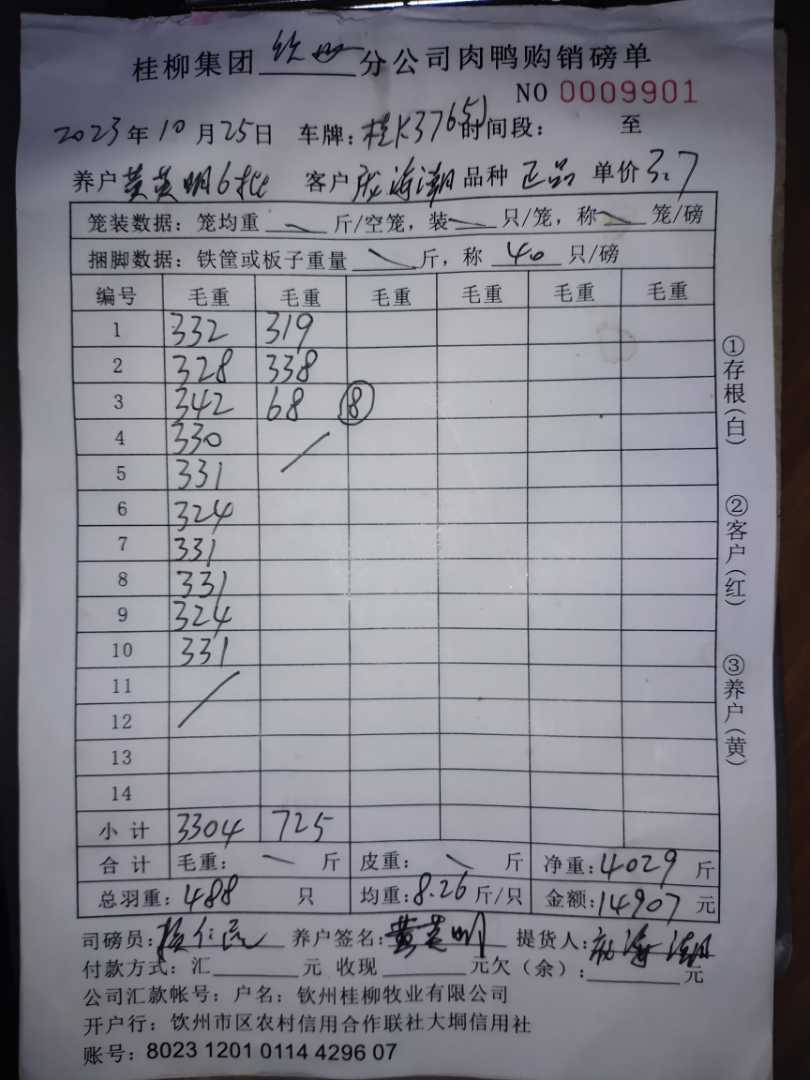 桂柳集团 钦州 分公司肉鸭购销磅单
NO 0009901
2023年10月25日 车牌：桂K37651 时间段： 至
养户 黄英明6批 客户 海潮 品种 正品 单价 3.7
笼装数据：笼均重 斤/空笼，装 只/笼，称 笼/磅
捆脚数据：铁筐或板子重量 斤，称 40 只/磅
编号 毛重 毛重 毛重 毛重 毛重 毛重
1 332 319
2 328 338
3 342 68 ⑧
4 330
5 331
6 324
7 331
8 331
9 324
10 331
11
12
13
14
小计 3304 725
合计 毛重： 斤 皮重： 斤 净重：4029 斤
总羽重：488 只 均重：8.26 斤/只 金额：14907 元
司磅员：杨仁 养户签名：黄英明 提货人：海潮
付款方式：汇 元 收现 元欠（余）： 元
公司汇款帐号：户名：钦州桂柳牧业有限公司
开户行：钦州市区农村信用合作联社大垌信用社
账号：8023 1201 0114 4296 07
①存根（白）
②客户（红）
③养户（黄）